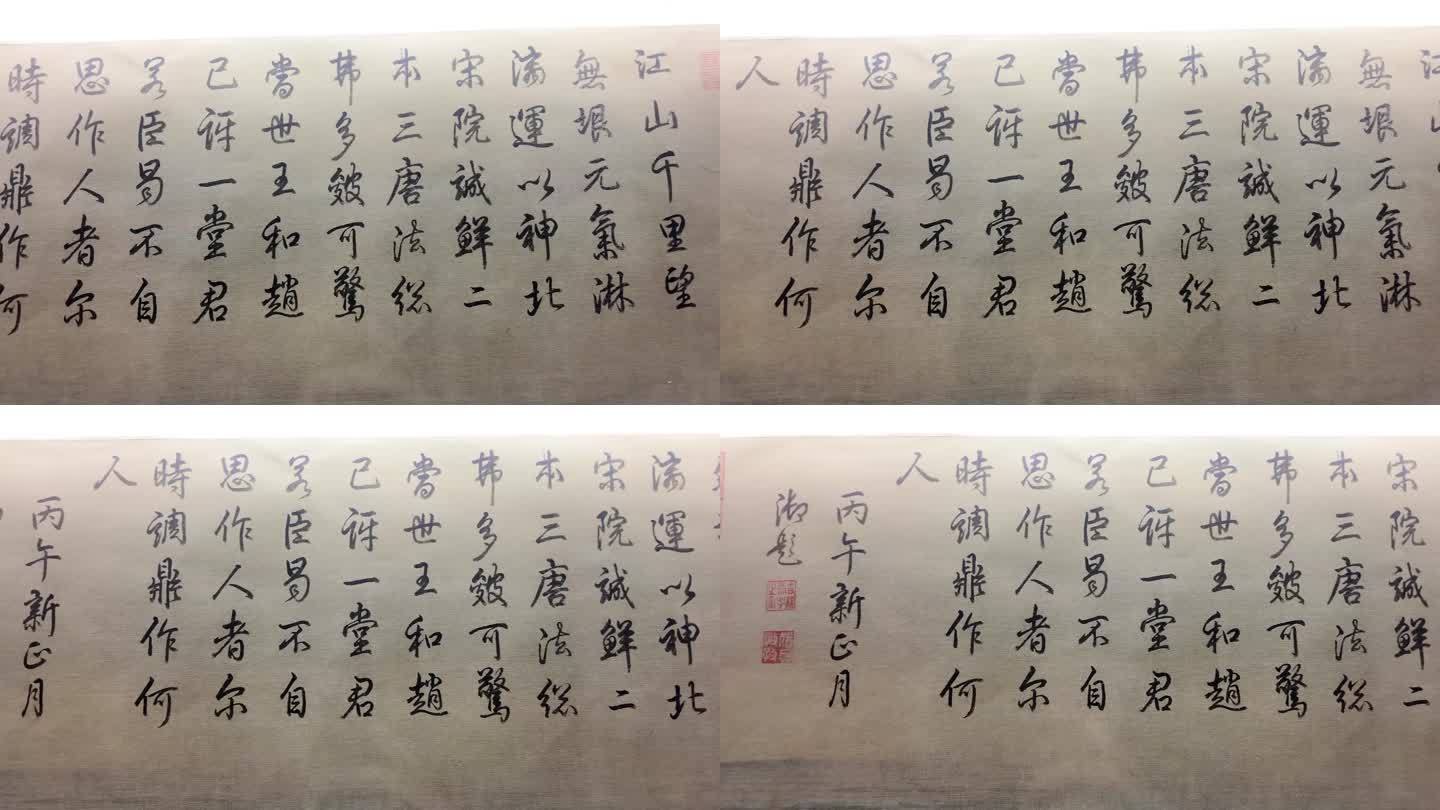 江山千里望
無垠元氣淋
漓運以神北
宋院誠鮮二
本三唐法総
弗多皴可驚
當世王和趙
已訝一堂君
若臣曷不自
思作人者尔
時調鼎作何
無垠元氣淋
漓運以神北
宋院誠鮮二
本三唐法総
弗多皴可驚
當世王和趙
已訝一堂君
若臣曷不自
思作人者尔
時調鼎作何
人
漓運以神北
宋院誠鮮二
本三唐法総
弗多皴可驚
當世王和趙
已訝一堂君
若臣曷不自
思作人者尔
時調鼎作何
人
丙午新正月
宋院誠鮮二
本三唐法総
弗多皴可驚
當世王和趙
已訝一堂君
若臣曷不自
思作人者尔
時調鼎作何
人
丙午新正月
御題